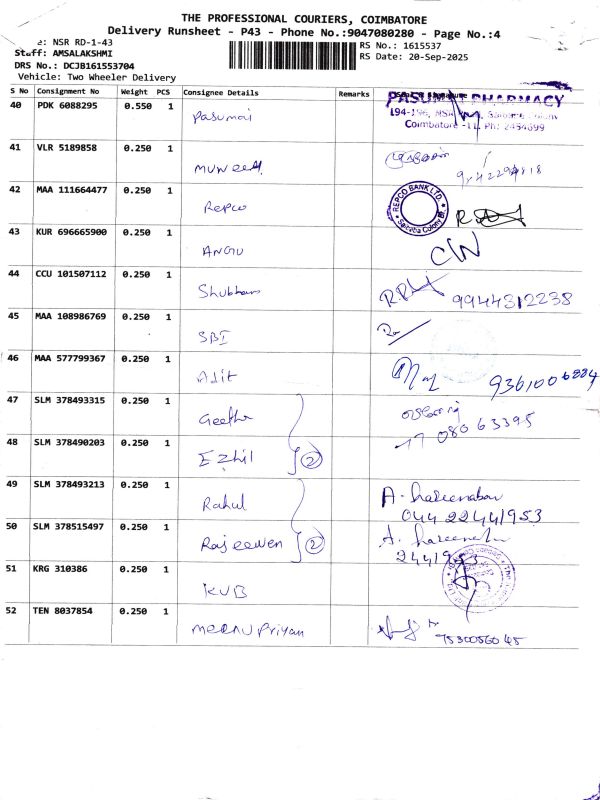 THE PROFESSIONAL COURIERS, COIMBATORE
Delivery Runsheet - P43 - Phone No.:9047080280 - Page No.:4
e: NSR RD-1-43
RS No.: 1615537
Staff: AMSALAKSHMI
RS Date: 20-Sep-2025
DRS No.: DCJB161553704
Vehicle: Two Wheeler Delivery
S No Consignment No Weight PCS Consignee Details Remarks
40 PDK 6088295 0.550 1 Pasumai
PASUMAI PHARMACY
Coimbatore -11. Ph: 2454699
41 VLR 5189858 0.250 1
42 MAA 111664477 0.250 1 Repco
REPCO BANK LTD.
Saibaba Colony
43 KUR 696665900 0.250 1 ANGU
44 CCU 101507112 0.250 1 Shubham
9944312238
45 MAA 108986769 0.250 1 SBI
46 MAA 577799367 0.250 1 Adit
47 SLM 378493315 0.250 1 Geetha
48 SLM 378490203 0.250 1 Ezhil 2
49 SLM 378493213 0.250 1 Rahul
044 22441953
50 SLM 378515497 0.250 1 Rajeewen 2
2441953
51 KRG 310386 0.250 1 KVB
52 TEN 8037854 0.250 1 Meenu Priyan